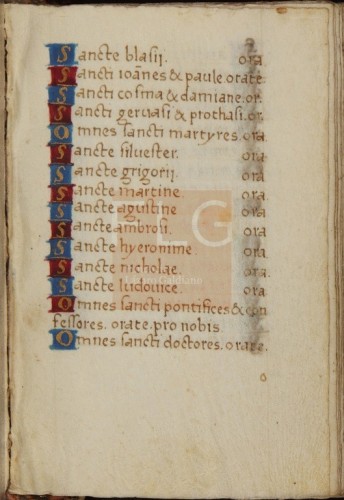 Sancte blasii. ora
Sancti ioānes & paule orate.
Sancti cosma & damiane. or.
Sancti gervasi & prothasi. or.
Omnes sancti martyres. ora
Sancte silvester. ora
Sancte grigorii. ora
Sancte martine. ora
Sancte agustine ora
Sancte ambrosi. ora
Sancte hyeronime. ora
Sancte nicholae. ora
Sancte ludovice. ora
Omnes sancti pontifices & con
fessores. orate. pro nobis
Omnes sancti doctores. orate.